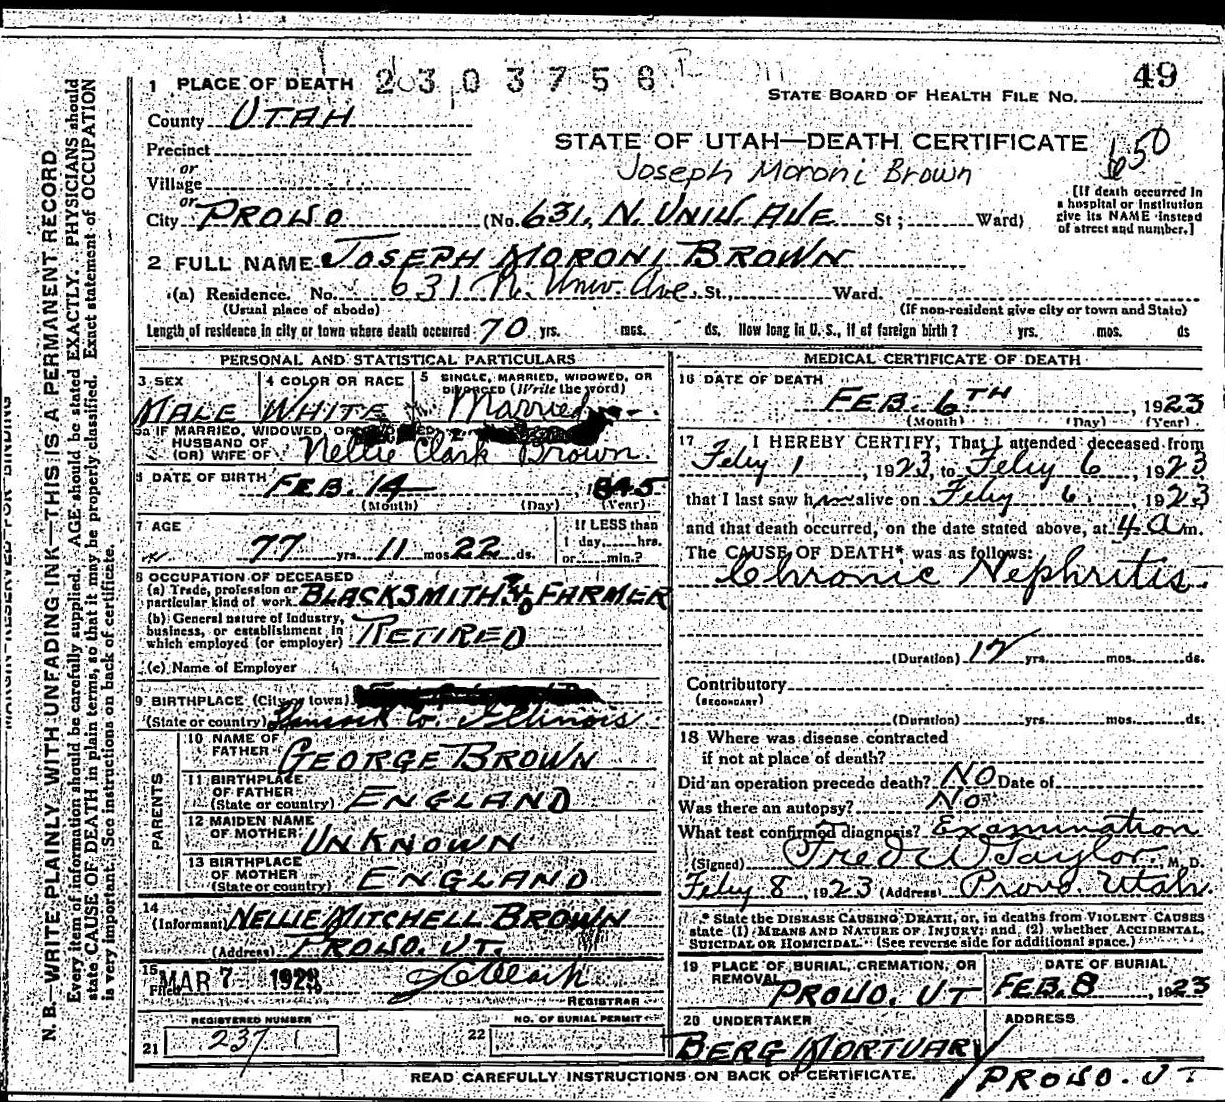 1 PLACE OF DEATH 2303756
49
STATE BOARD OF HEALTH FILE NO.
County UTAH
STATE OF UTAH—DEATH CERTIFICATE 650
Precinct
Joseph Moroni Brown
or
Village
or
City PROVO (No. 631, N. UNIV. AVE St; Ward)
[If death occurred in
a hospital or institution
give its NAME instead
of street and number.]
2 FULL NAME JOSEPH MORONI BROWN
(a) Residence. No. 631 N. Univ. Ave. St., Ward.
(Usual place of abode) (If non-resident give city or town and State)
Length of residence in city or town where death occurred 70 yrs. mos. ds. How long in U. S., if of foreign birth? yrs. mos. ds
PERSONAL AND STATISTICAL PARTICULARS
3 SEX 4 COLOR OR RACE 5 SINGLE, MARRIED, WIDOWED, OR
DIVORCED (Write the word)
MALE WHITE Married
5a IF MARRIED, WIDOWED, OR
HUSBAND OF
(OR) WIFE OF Nellie Clark Brown.
6 DATE OF BIRTH FEB. 14 1845
(Month) (Day) (Year)
7 AGE
77 yrs. 11 mos 22 ds.
If LESS than
1 day, hrs.
or min.?
8 OCCUPATION OF DECEASED
(a) Trade, profession or
particular kind of work BLACKSMITH & FARMER
(b) General nature of Industry,
business, or establishment in
which employed (or employer) RETIRED
(c) Name of Employer
9 BIRTHPLACE (City or town)
(State or country) Hancock Co. Illinois
PARENTS
10 NAME OF
FATHER GEORGE BROWN
11 BIRTHPLACE
OF FATHER
(State or country) ENGLAND
12 MAIDEN NAME
OF MOTHER UNKNOWN
13 BIRTHPLACE
OF MOTHER
(State or country) ENGLAND
14
(Informant) NELLIE MITCHELL BROWN
(Address) PROVO. UT.
15
Filed MAR 7 1923
REGISTRAR
REGISTERED NUMBER
21 237
NO. OF BURIAL PERMIT
22
MEDICAL CERTIFICATE OF DEATH
16 DATE OF DEATH
FEB. 6TH, 1923
(Month) (Day) (Year)
17 I HEREBY CERTIFY, That I attended deceased from
Feby 1, 1923, to Feby 6, 1923
that I last saw him alive on Feby 6, 1923
and that death occurred, on the date stated above, at 4 a m.
The CAUSE OF DEATH* was as follows:
Chronic Nephritis.
(Duration) 12 yrs. mos. ds.
Contributory
(SECONDARY)
(Duration) yrs. mos. ds.
18 Where was disease contracted
if not at place of death?
Did an operation precede death? NO Date of
Was there an autopsy? No
What test confirmed diagnosis? Examination
(Signed) Fred W Taylor, M. D.
Feby 8, 1923 (Address) Provo. Utah
* State the DISEASE CAUSING DEATH, or, in deaths from VIOLENT CAUSES
state (1) MEANS AND NATURE OF INJURY; and (2) whether ACCIDENTAL,
SUICIDAL OR HOMICIDAL. (See reverse side for additional space.)
19 PLACE OF BURIAL, CREMATION, OR
REMOVAL PROVO. UT
DATE OF BURIAL
FEB. 8, 1923
20 UNDERTAKER
BERG MORTUARY
ADDRESS
PROVO. UT
READ CAREFULLY INSTRUCTIONS ON BACK OF CERTIFICATE.
MARGIN RESERVED FOR BINDING
N. B.—WRITE PLAINLY WITH UNFADING INK—THIS IS A PERMANENT RECORD
Every item of information should be carefully supplied. AGE should be stated EXACTLY. PHYSICIANS should
state CAUSE OF DEATH in plain terms, so that it may be properly classified. Exact statement of OCCUPATION
is very important. See instructions on back of certificate.